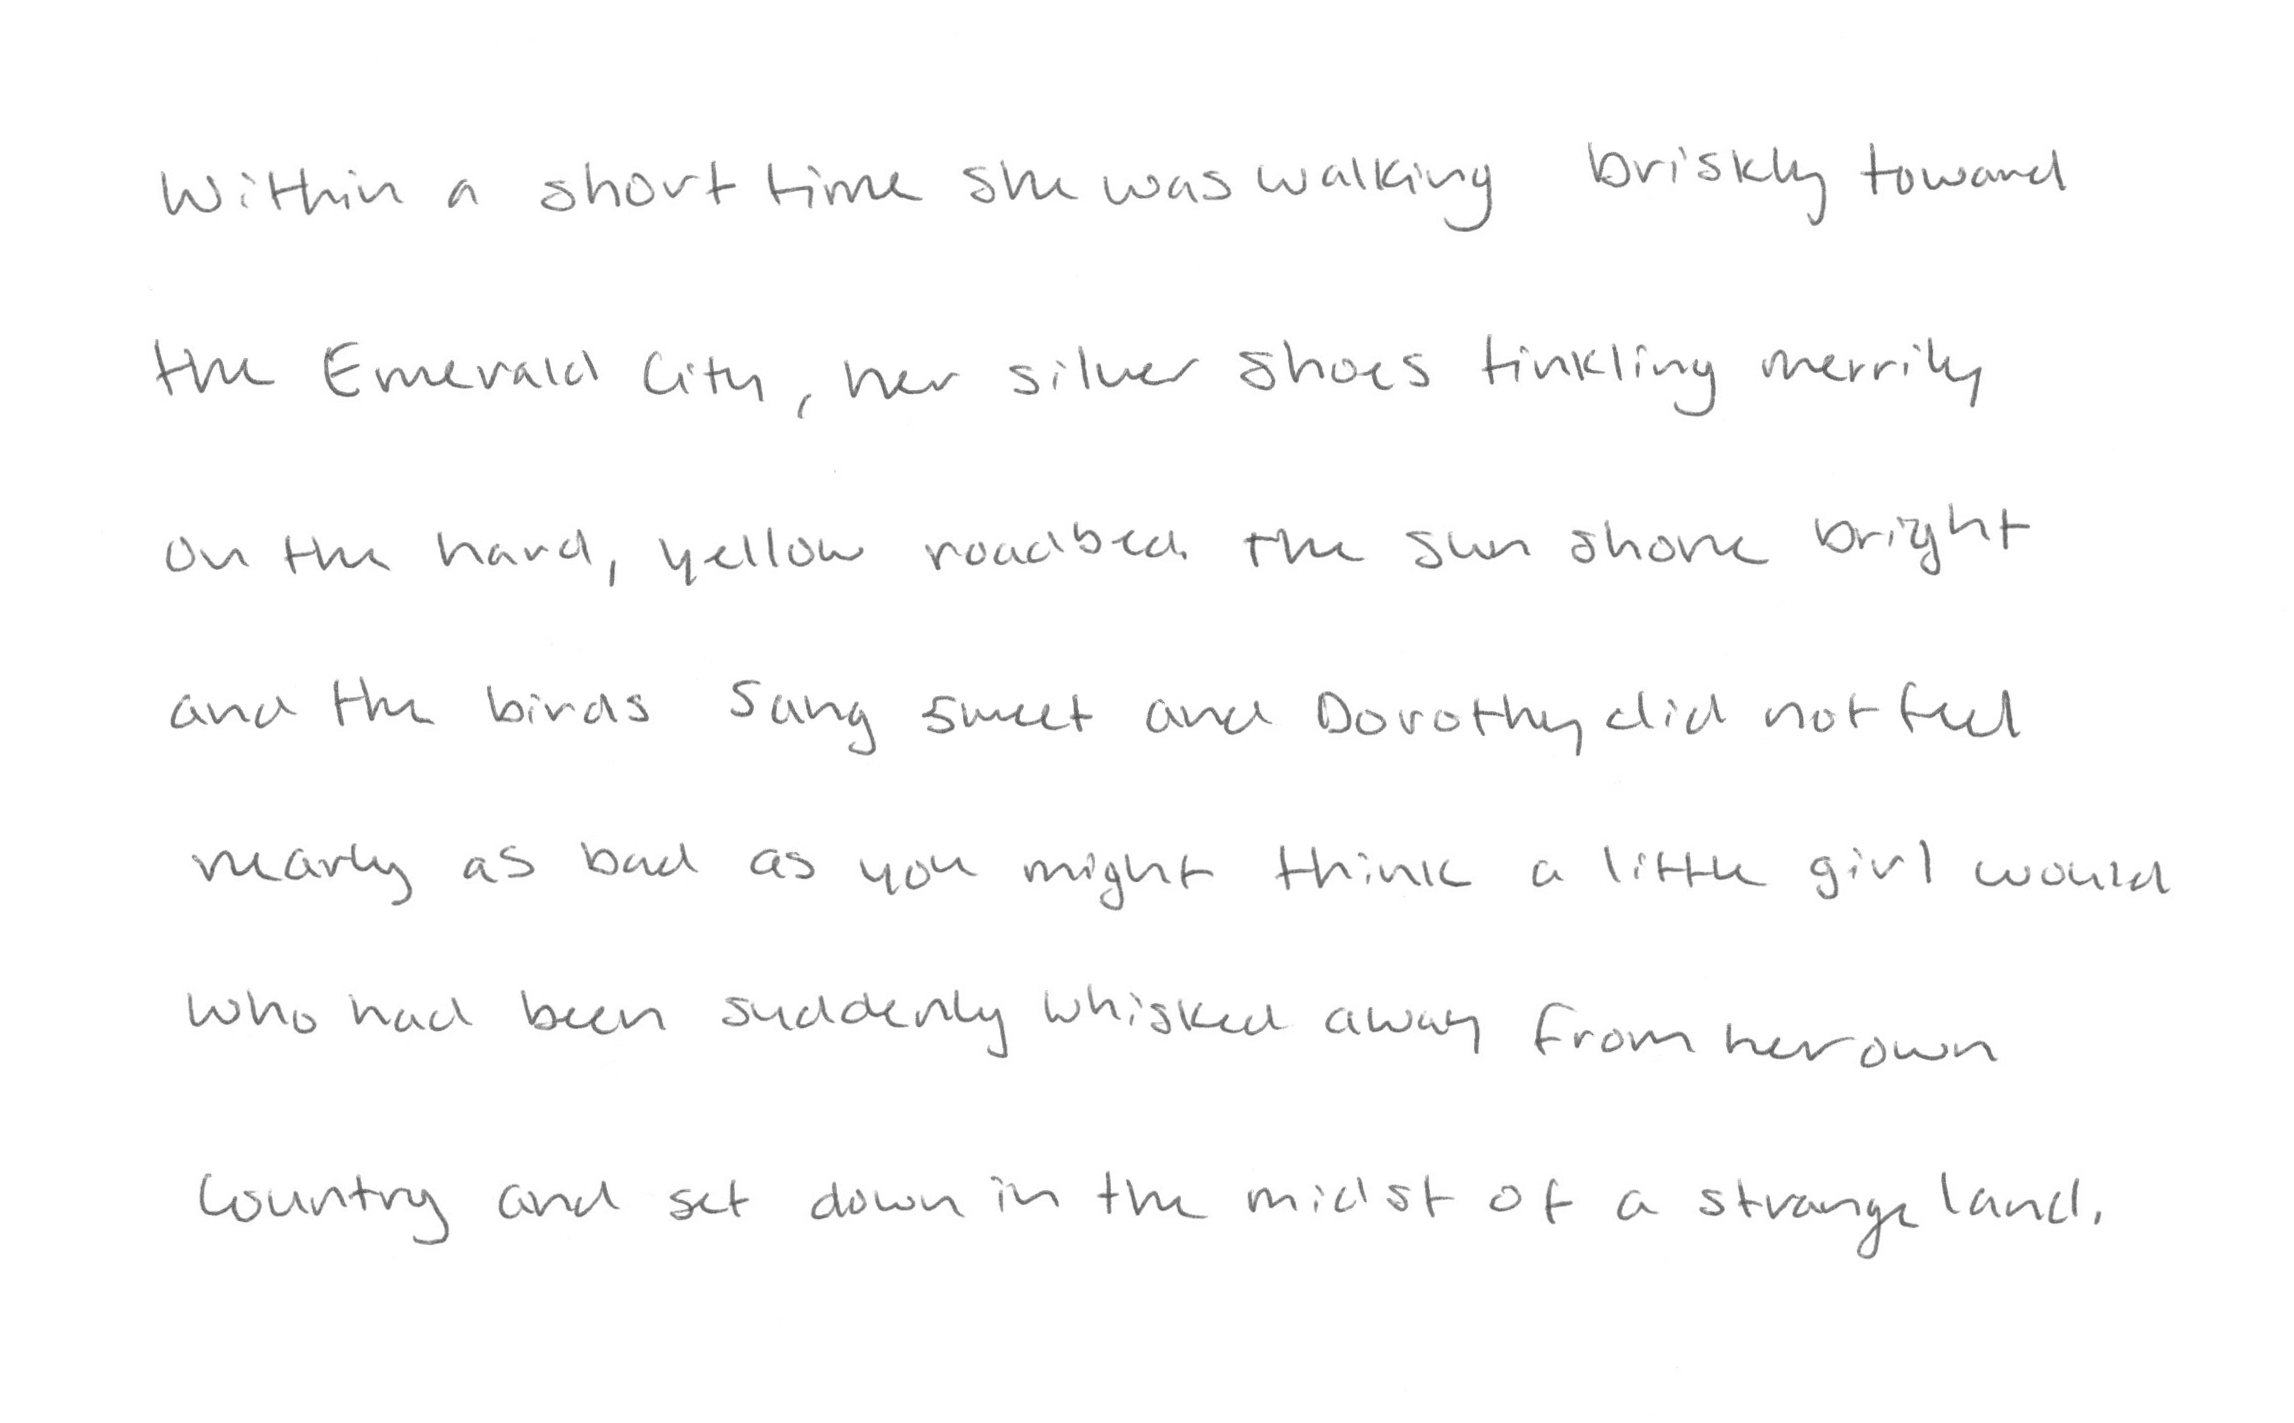 Within a short time she was walking briskly toward
the Emerald City, her silver shoes tinkling merrily
on the hard, yellow roadbed. the sun shone bright
and the birds sang sweet and Dorothy did not feel
nearly as bad as you might think a little girl would
who had been suddenly whisked away from her own
country and set down in the midst of a strange land.